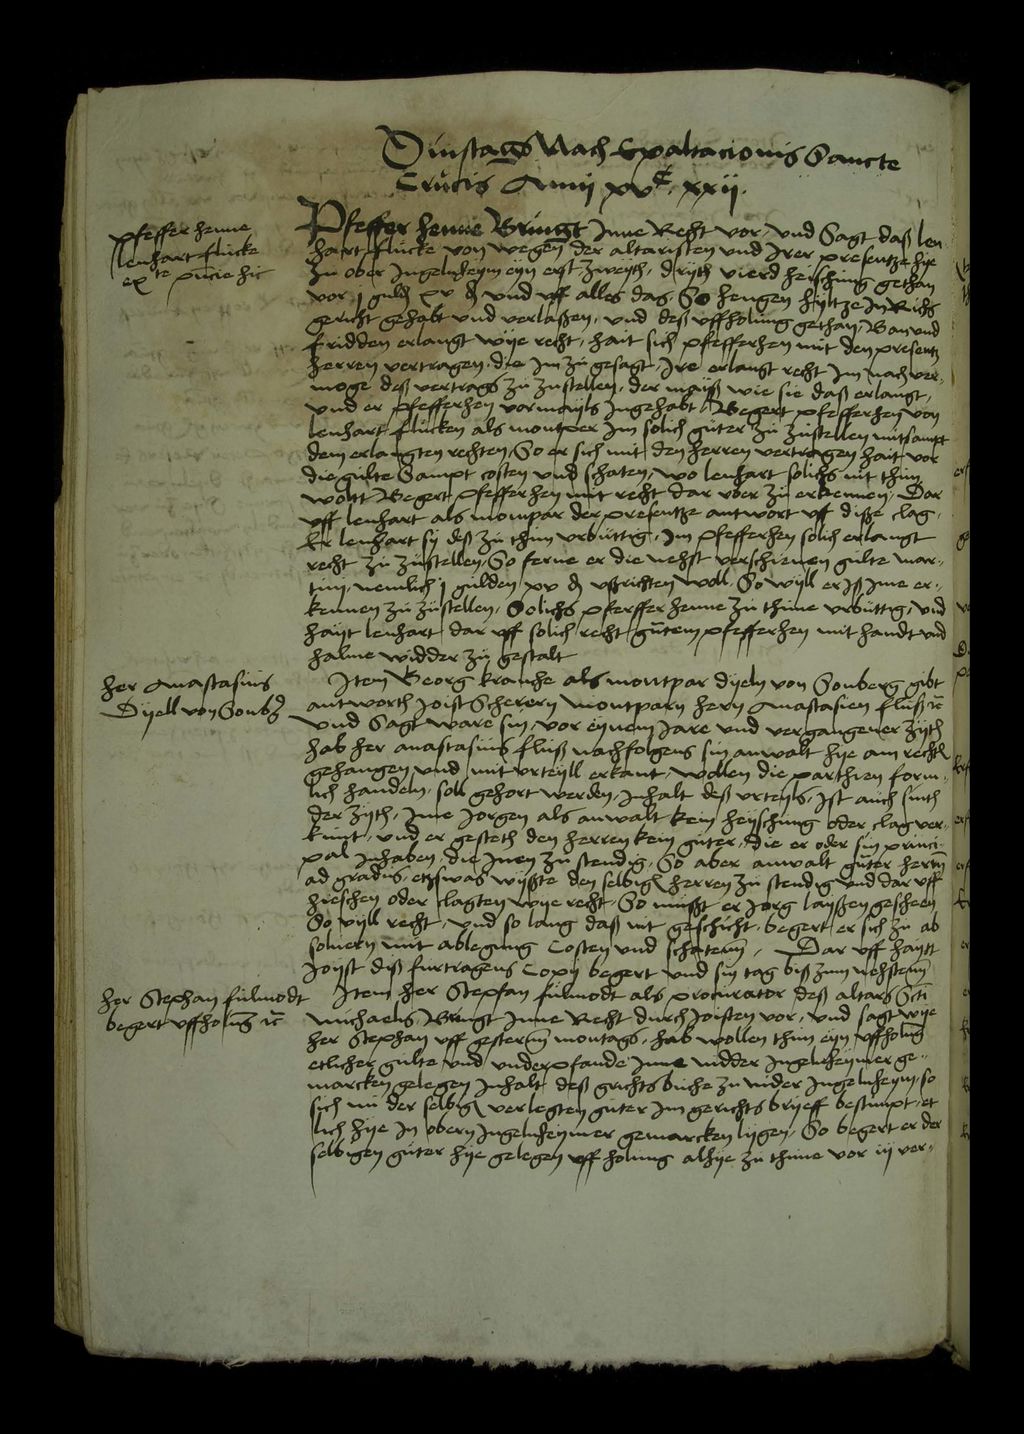 Dinstags Nach Exaltacionis Sancte
Crucis Anno xvᶜ xxij.
Pfeffer henne
lenhart flucke
ex te pñcie hic
Pfeffer henne Bringt Inne Recht vor, vnd Sagt daß len
hart flucke von wegen der altaristen vnd Irer presentze hye
zu ober Ingelnheym eyn erst zweyth, dryth vierd heischung gethan
vor j guld xv ₰ vnd vff alles das So hengen hyltze In Richs
gericht gehabt vnd verlaßen, vnd deß vffholung gethan, Ban vnd
fridden erlangt wye recht, hait sich pfefferhen mit den presentz
herren vertragen, die Im zu gesagt Ire erlangt recht Im nach ver-
moge deß vertrags zu zustellen, der mayß wie sie daß erlangt,
vnd er Pfefferhen vormayls Ingehabt, Begert pfefferhen von
lenhart flucken als montper Im solich guter zu zustellen mitsampt
dem erlangten rechten, So er sich mit den herren vertragen hait vor
die gulte Sampt costen vnd schaten, wo lenhart solichs nit thun
wolt Begert pfefferhen mit recht dar vber zu erkennen, Dar
vff lenhart als mompar der presentze antwort vff diße clag,
Er lenhart sy deß zu thun vrbuttig, Im pfefferhen solich erlangt
recht zu zustellen, So ferne er die nehst verschienen gulte mar-
tini, nemlich j gulden xv ₰ vßrichten woll, So wyll er Iß Ime er-
kennen zu zustellen, Solichs pferffer henne zu thune vrbuttig, vnd
hayt lenhart dar vff solich recht gutern pfefferhen mit handt vnd
halme widder zu gestalt
her Anastasius
Dyell von Sonbg
Item Georg krauche als montpar dyeln von Sonberg gibt
antworth Joist Scherern montparn hern Anastasien fluß ꝛc
vnd Sagt ware sin, vor eynem Jare vnd vergangener zyth
hab her anastasius fluß nachfolgens sin anwalt hye am rechten
gehangen vnd mit vrteyll erkant, wollen die parthien form-
lich handeln, soll gehort werden, Inhalt deß vrteyls, Ist auch sinth
der zyth, Ime Jorgen als anwalt kein heyschung oder clag ver-
kunt, vnd er gesteth den herren kein guter, die er oder sin princi-
pal Inhaben, die Inen zu stendig, So aber anwalt guter hern
ad gradus, etzwas wyßte den selbigen herren zu stendig vnd dar vff
hieschen oder clagten wye recht, So mußt er Jorg layßen gescheen
So vyll recht, vnd so lang daß nit geschicht, begert er sich zu ab
soluern mit ablegung Costen vnd schatenn, Dar vff hayt
Joyst diß furtragens Copy begert vnd sin tag biß zum nehstenn
her Stephan fulmodt
begert vffholung ꝛc
Item her Stepfan fulmodt als procurator deß altars Scti
michaelis, Bringt Inne Recht durch Joisten vor, vnd sagt wye
her Stephan vff gesternn montags, hab wollen thun eyn vffholung
etlicher gulte vnd vnderpfande Inne nidder Ingelnheymer ge-
marcken gelegen Inhalt deß grichts buche zu nider Ingelnheym, so
sich nu der selbigen verlegten guter Im gerichts brieff bestimpt, et
lich hye In obern Ingelnheymer gemarcken lygen, So begert er der
selbigen guter hye gelegen vff holung alhye zu thune vor iij ver-